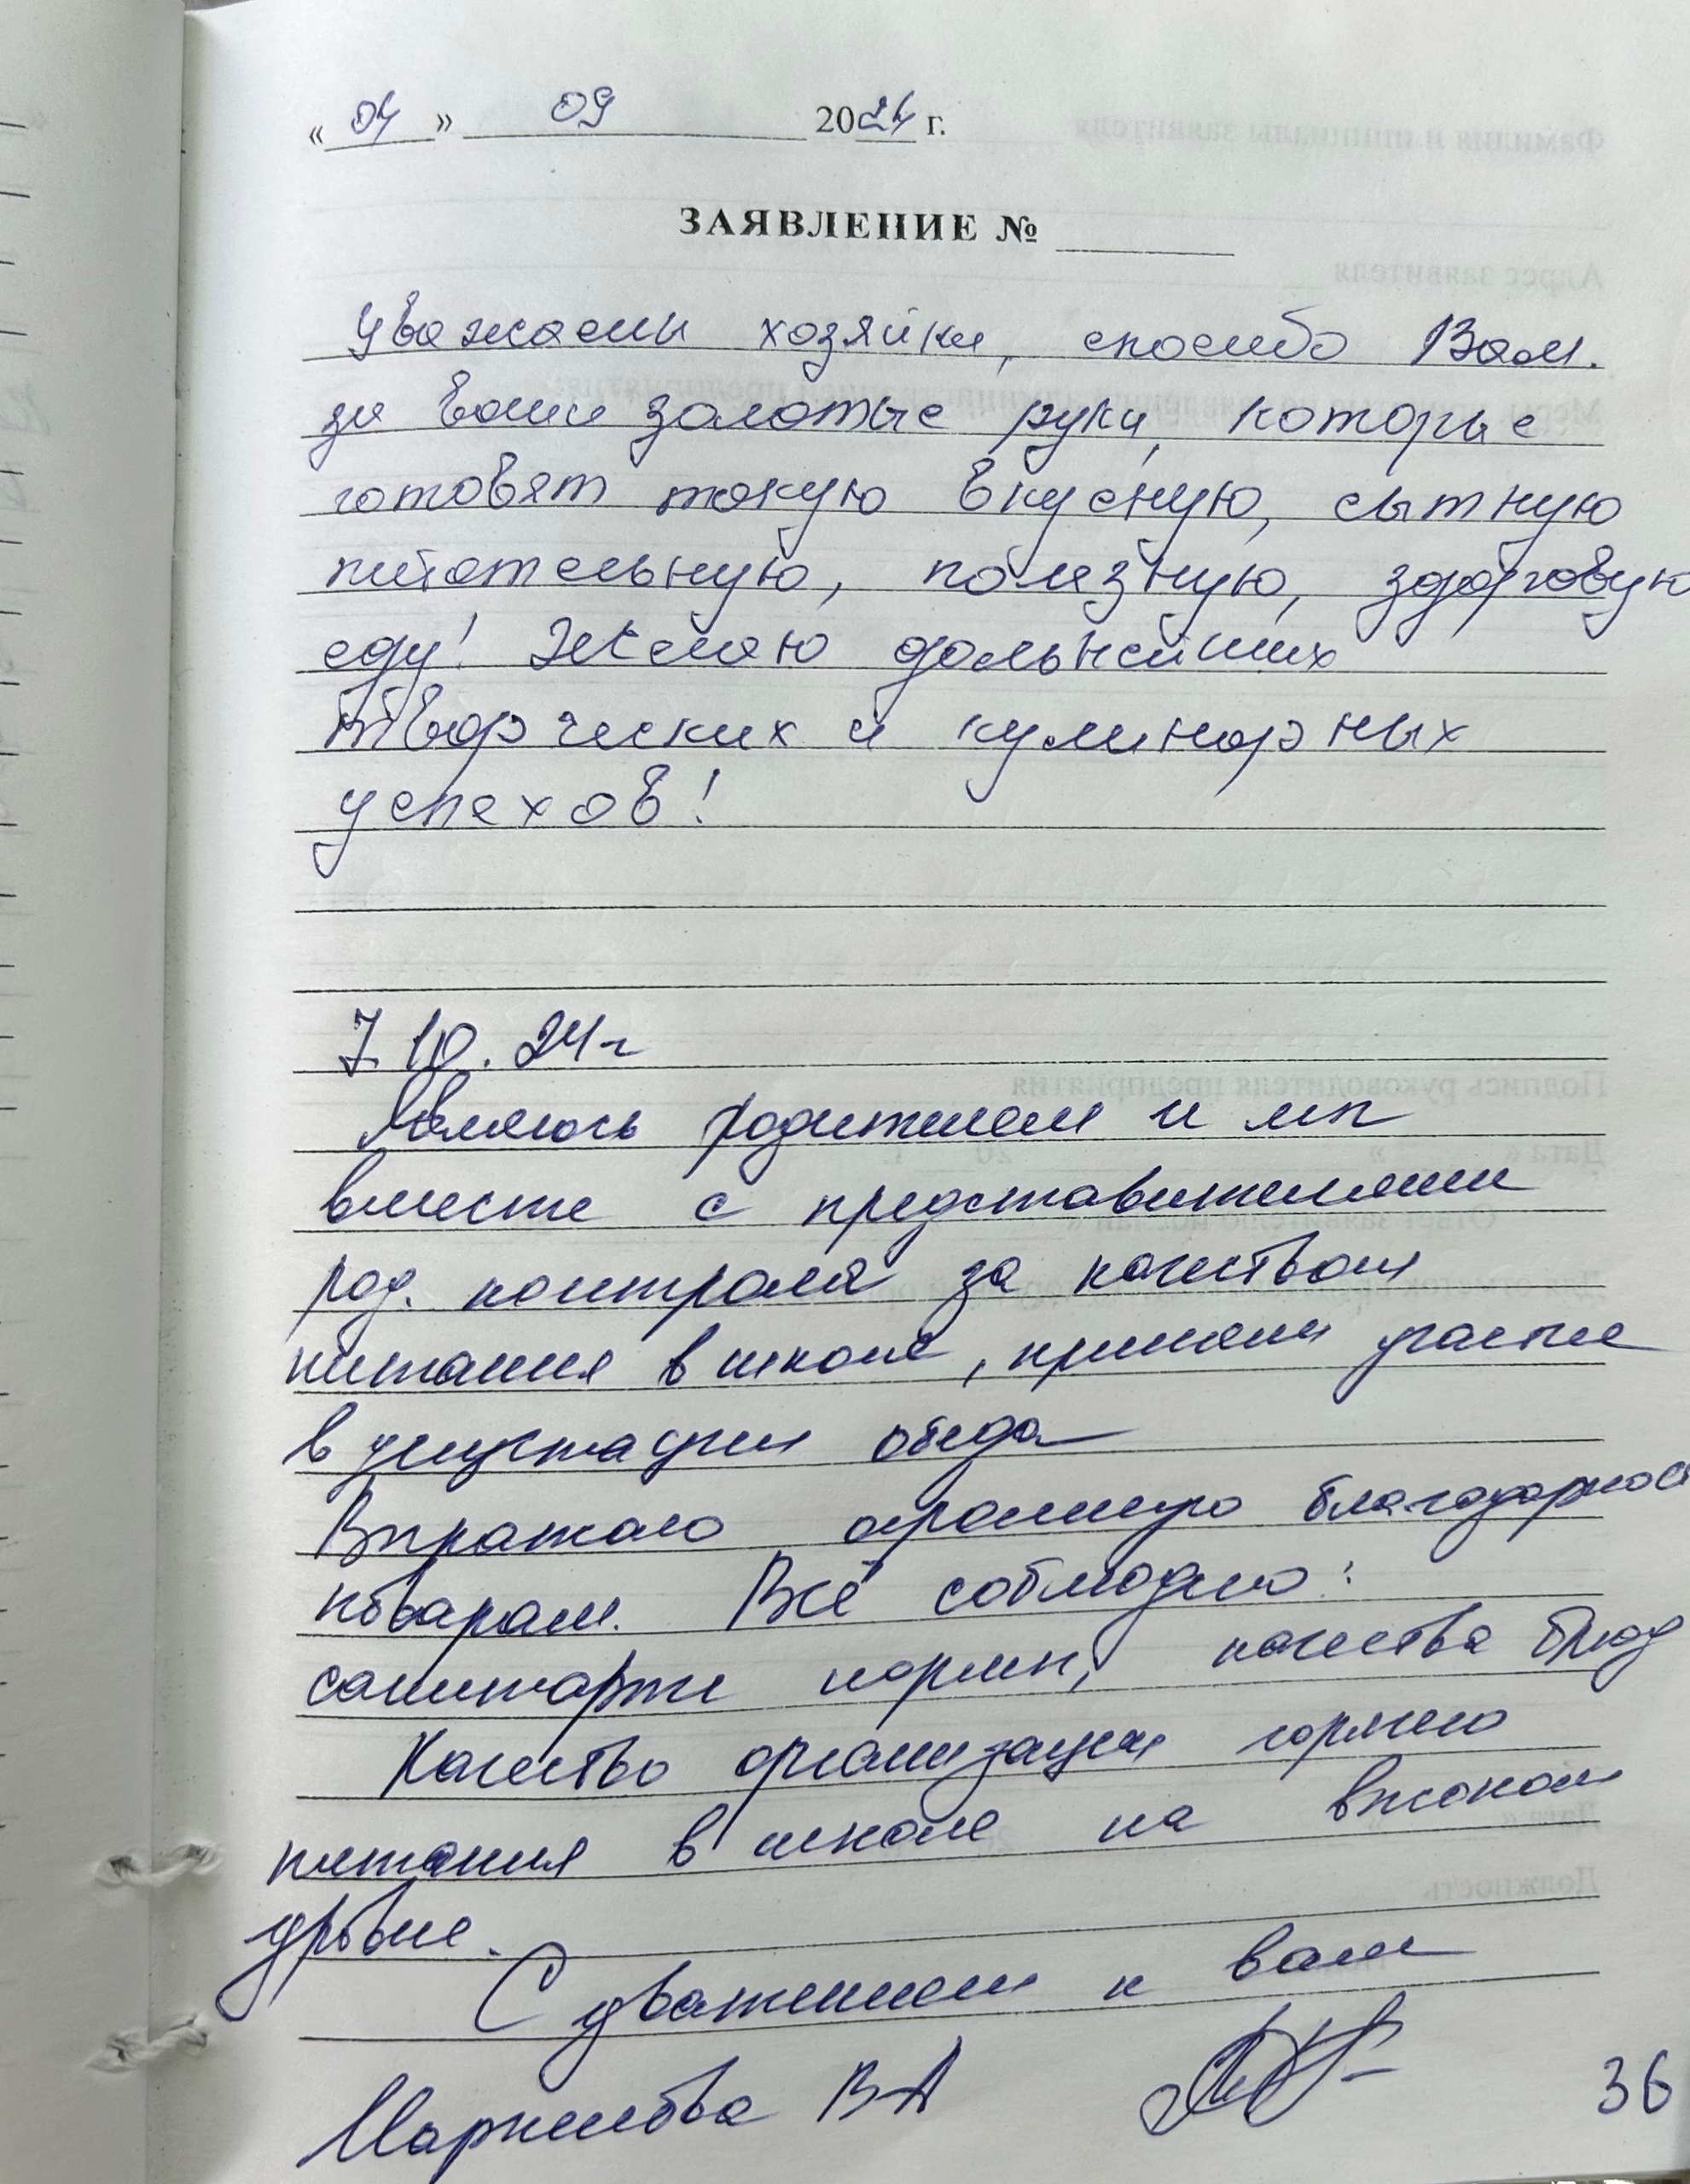 «04» 09 2024 г.
ЗАЯВЛЕНИЕ №
Уважаемы хозяйки, спасибо Вам.
за ваши золотые руки, которые
готовят такую вкусную, сытную
питательную, полезную, здоровую
еду! Желаю дальнейших
творческих и кулинарных
успехов!
7.10.24г
Являюсь родителем и мы
вместе с представителями
род. контроля за качеством
питания в школе, приняли участие
в дегустации обеда
Выражаю огромную благодарнос
поварам. Всё соблюдено:
санитарные нормы, качества блюд
Качество организации горячего
питания в школе на высоком
уровне.
С уважением к вам
В.А
36